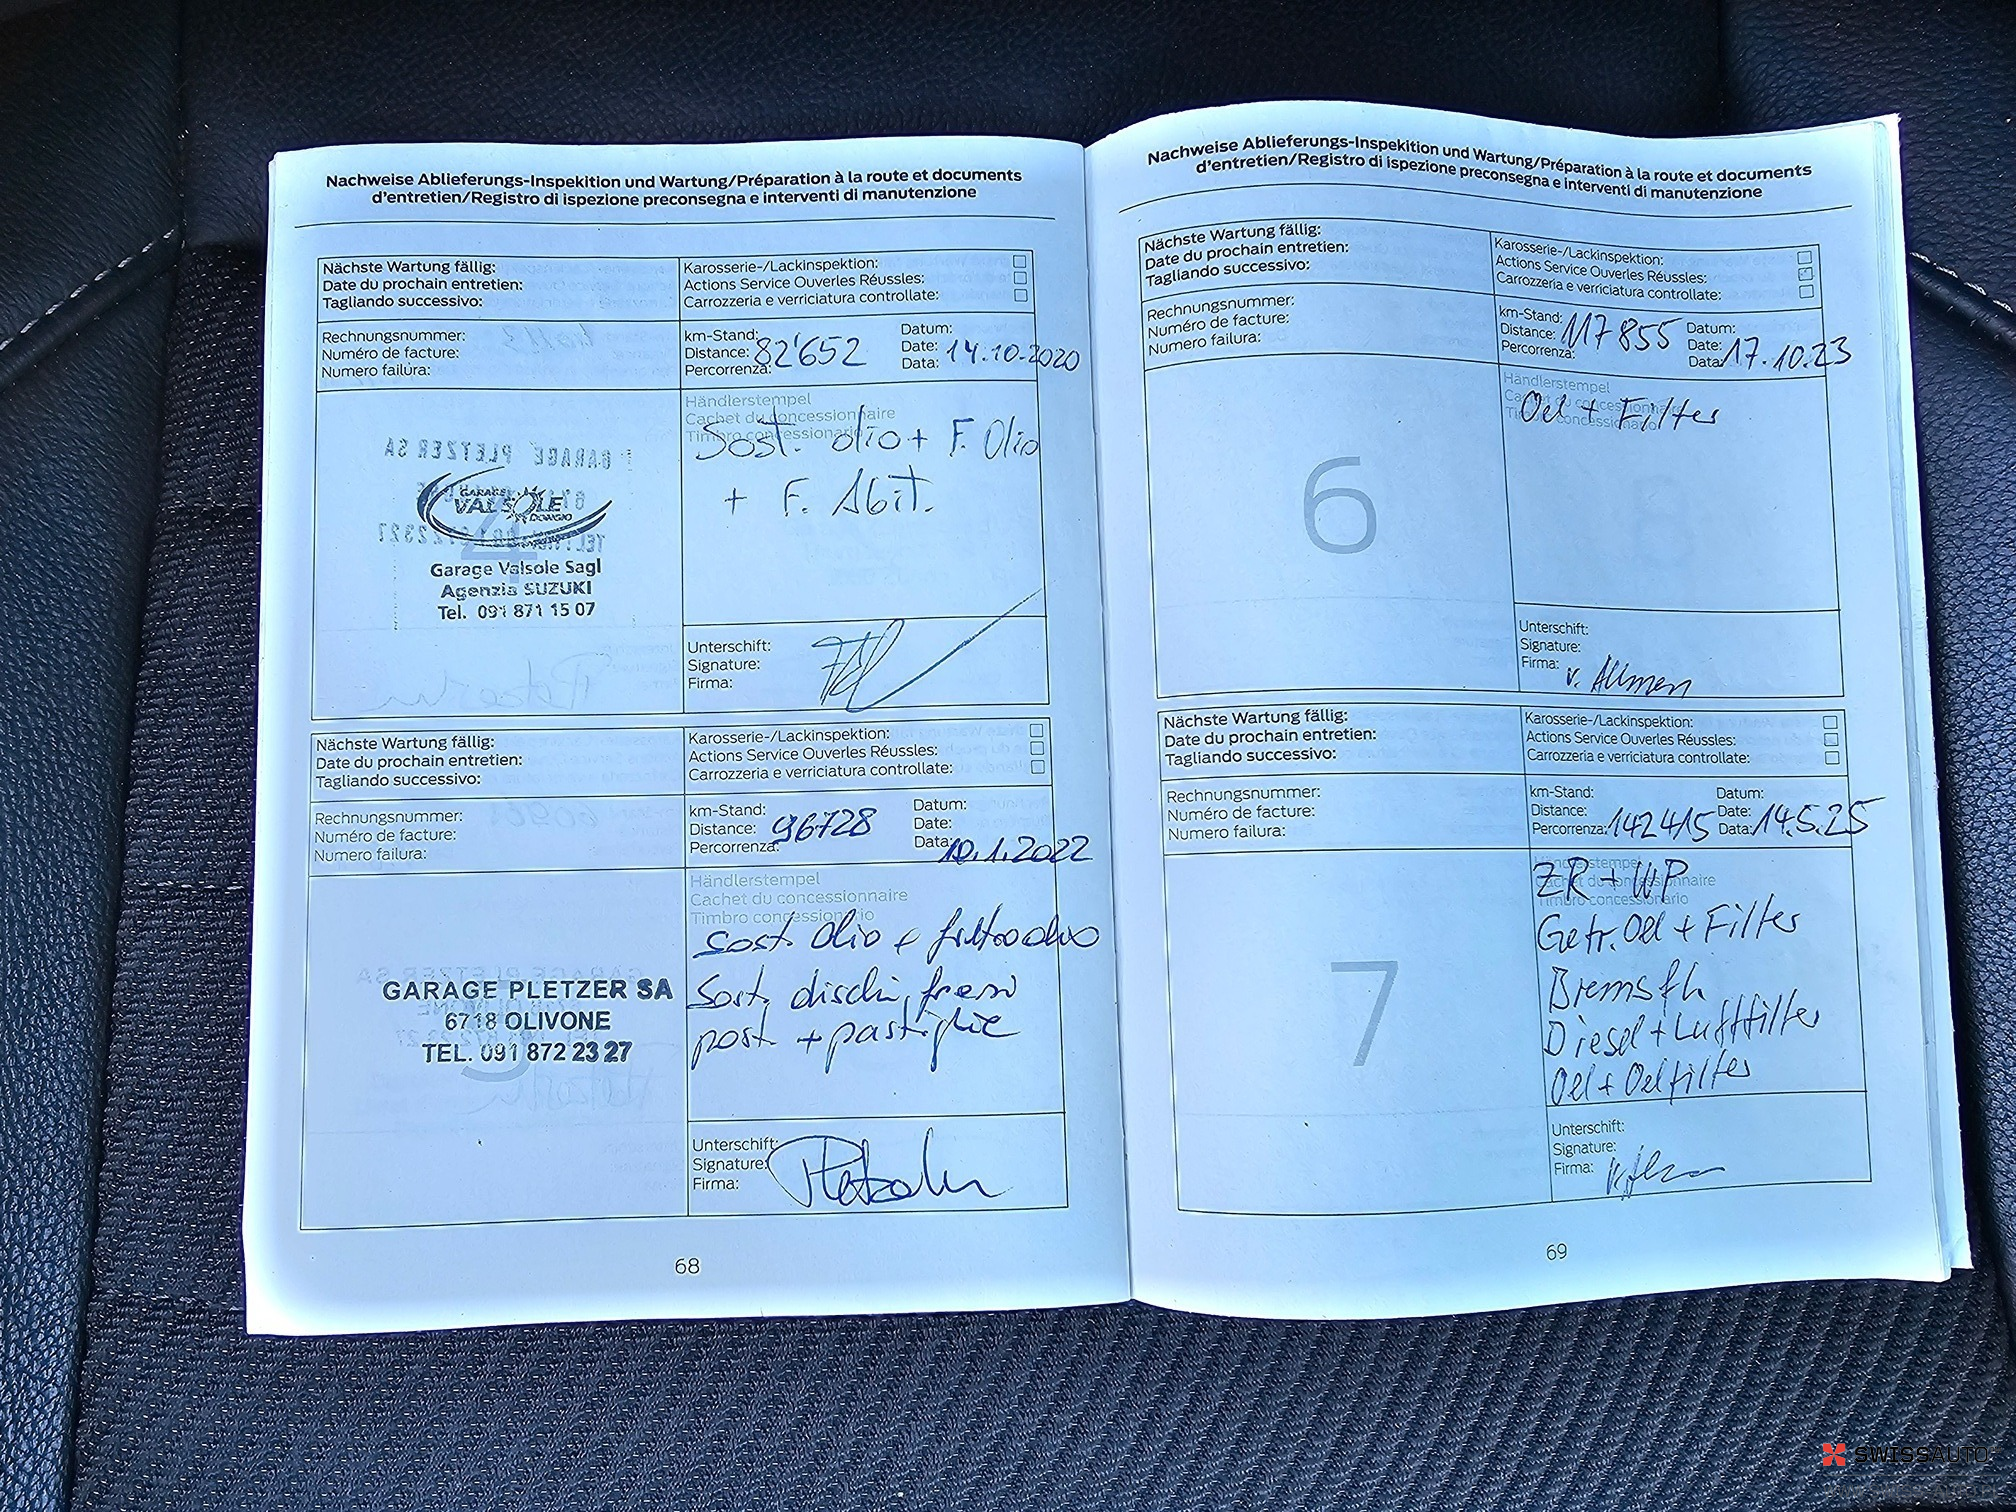 Nachweise Ablieferungs-Inspekition und Wartung/Préparation à la route et documents
d'entretien/Registro di ispezione preconsegna e interventi di manutenzione
Nächste Wartung fällig:
Date du prochain entretien:
Tagliando successivo:
Karosserie-/Lackinspektion:
Actions Service Ouverles Réussles:
Carrozzeria e verriciatura controllate:
Rechnungsnummer:
Numéro de facture:
Numero failura:
km-Stand:
Distance: 82'652
Percorrenza:
Datum:
Date:
Data: 14.10.2020
GARAGE
VALSOLE
DONGIO
4
Garage Valsole Sagl
Agenzia SUZUKI
Tel. 091 871 15 07
Händlerstempel
Cachet du concessionnaire
Timbro concessionario
Sost. olio + F. Olio
+ F. Abit.
Unterschift:
Signature:
Firma:
Nächste Wartung fällig:
Date du prochain entretien:
Tagliando successivo:
Karosserie-/Lackinspektion:
Actions Service Ouverles Réussles:
Carrozzeria e verriciatura controllate:
Rechnungsnummer:
Numéro de facture:
Numero failura:
km-Stand:
Distance: 96728
Percorrenza:
Datum:
Date:
Data: 10.1.2022
GARAGE PLETZER SA
6718 OLIVONE
TEL. 091 872 23 27
5
Händlerstempel
Cachet du concessionnaire
Timbro concessionario
sost. olio e filtro olio
Sost. dischi freni
post + pastiglie
Unterschift:
Signature:
Firma:
68
Nachweise Ablieferungs-Inspekition und Wartung/Préparation à la route et documents
d'entretien/Registro di ispezione preconsegna e interventi di manutenzione
Nächste Wartung fällig:
Date du prochain entretien:
Tagliando successivo:
Karosserie-/Lackinspektion:
Actions Service Ouverles Réussles:
Carrozzeria e verriciatura controllate:
Rechnungsnummer:
Numéro de facture:
Numero failura:
km-Stand:
Distance: 117855
Percorrenza:
Datum:
Date:
Data: 17.10.23
6
Händlerstempel
Cachet du concessionnaire
Timbro concessionario
Oel + Filter
Unterschift:
Signature:
Firma: v. Allmen
Nächste Wartung fällig:
Date du prochain entretien:
Tagliando successivo:
Karosserie-/Lackinspektion:
Actions Service Ouverles Réussles:
Carrozzeria e verriciatura controllate:
Rechnungsnummer:
Numéro de facture:
Numero failura:
km-Stand:
Distance:
Percorrenza: 142415
Datum:
Date:
Data: 14.5.25
7
Händlerstempel
Cachet du concessionnaire
Timbro concessionario
ZR + WP
Getr. Oel + Filter
Bremsfl.
Diesel + Luftfilter
Oel + Oelfilter
Unterschift:
Signature:
Firma:
69
SWISSAUTO